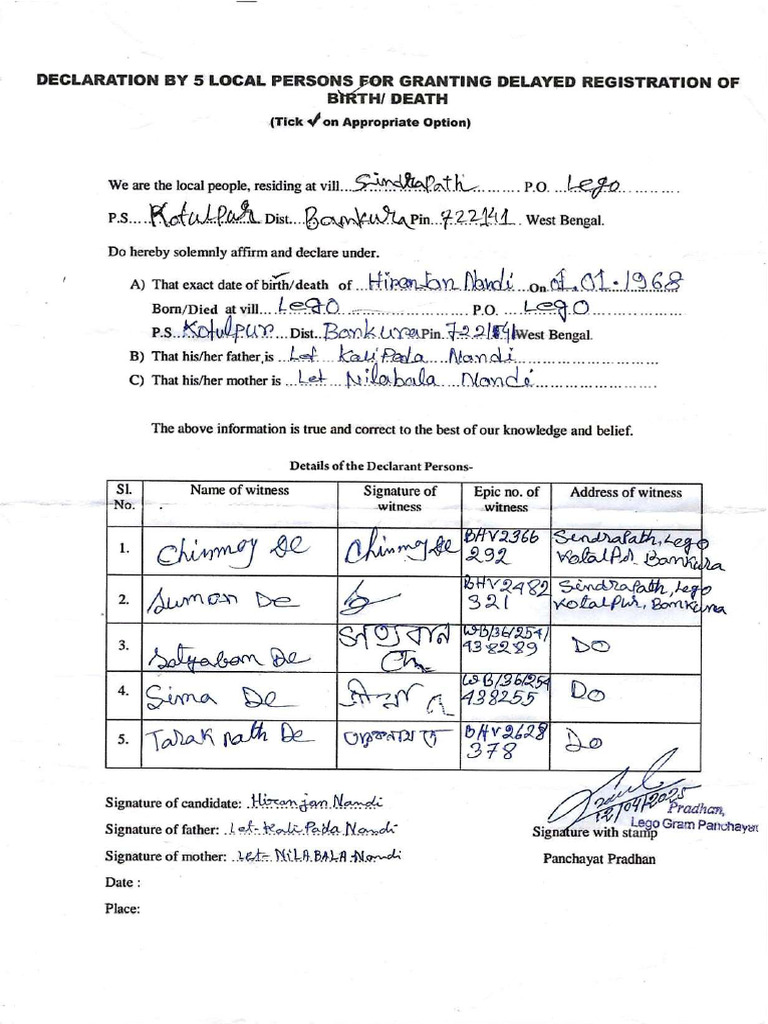 DECLARATION BY 5 LOCAL PERSONS FOR GRANTING DELAYED REGISTRATION OF
BIRTH/ DEATH
(Tick ✓ on Appropriate Option)
We are the local people, residing at vill....Sindrapath............ P.O. ...Lego................
P.S.....Kotulpur Dist...Bankura Pin..722141.. West Bengal.
Do hereby solemnly affirm and declare under.
A) That exact date of birth/death of ...Hiranjan Nandi...On 01.01-1968
Born/Died at vill....Lego.................. P.O. ....Lego........
P.S. Kotulpur.... Dist...Bankura Pin..722141 West Bengal.
B) That his/her father is ...Let Kali Pada Nandi..................
C) That his/her mother is ...Let Nilabala Nandi.....................
The above information is true and correct to the best of our knowledge and belief.
Details of the Declarant Persons-
Sl. No. Name of witness Signature of witness Epic no. of witness Address of witness
1. Chinmoy De Chinmoy De BHV2366 292 Sindrapath, Lego Kotalpur Bankura
2. Suman De BHV2482 321 Sindrapath, Lego Kotalpur, Bankura
3. Satyaban De সত্যবান WB/36/254/ 438289 Do
4. Sima De সীমা দে WB/36/254 438255 Do
5. Tarak nath De তারকনাথ দে BHV2628 378 Do
Signature of candidate: Hiranjan Nandi
Signature of father: Let- Kali Pada Nandi
Signature of mother: Let- NILABALA Nandi
Date :
Place:
12/04/2025
Pradhan,
Lego Gram Panchayat
Signature with stamp
Panchayat Pradhan